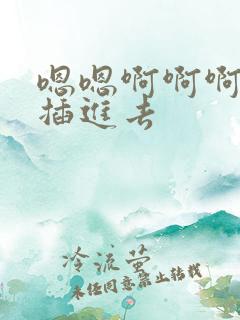 嗯嗯啊啊啊
插进去
冷流萤
未经同意禁止转载